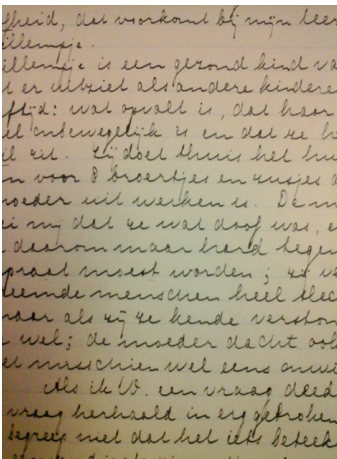 fheid, dat voorkomt bij mijn leer
illempje.
illempje is een gezond kind va
t er uitziet als andere kindere
ftijd: wat opvalt is, dat haar
el onbewegelijk is en dat ze h
il zit. Zij doet thuis het hu
n voor 8 broertjes en zusjes a
moeder uit werken is. De m
ei mij dat ze wat doof was, e
daarom maar hard tegen
praat moest worden; zij ve
eemde menschen heel slec
naar als zij ze kende verston
wel; de moeder dacht ook
et misschien wel eens onwi
Als ik W. een vraag deed
vraag herhaald in erg gebroken
begreep niet dat het iets beteek